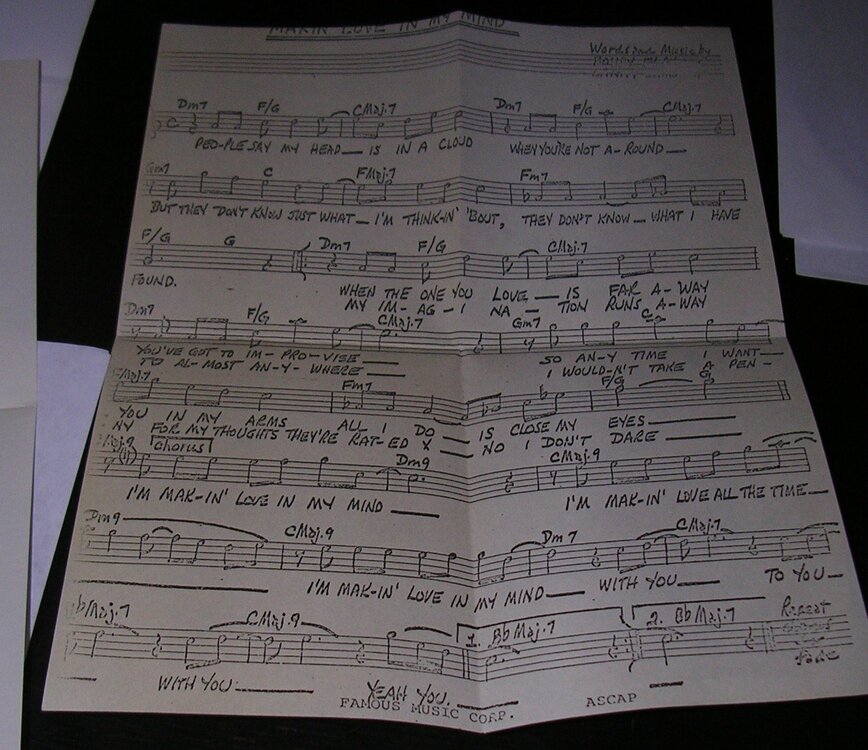 MAKIN' LOVE IN MY MIND
Words and Music by
Dm7 F/G CMaj.7 Dm7 F/G CMaj.7
PEO-PLE SAY MY HEAD IS IN A CLOUD WHEN YOU'RE NOT A-ROUND
Gm7 C FMaj.7 Fm7
BUT THEY DON'T KNOW JUST WHAT I'M THINK-IN' 'BOUT, THEY DON'T KNOW WHAT I HAVE
F/G G Dm7 F/G CMaj.7
FOUND.
WHEN THE ONE YOU LOVE IS FAR A-WAY
MY IM-AG-I NA-TION RUNS A-WAY
Dm7 F/G CMaj.7 Gm7 C
YOU'VE GOT TO IM-PRO-VISE SO AN-Y TIME I WANT
TO AL-MOST AN-Y-WHERE I WOULD-N'T TAKE A PEN-
FMaj.7 Fm7 F/G G
YOU IN MY ARMS ALL I DO IS CLOSE MY EYES
NY FOR MY THOUGHTS THEY'RE RAT-ED X NO I DON'T DARE
CMaj.9 Chorus Dm9 CMaj.9
I'M MAK-IN' LOVE IN MY MIND I'M MAK-IN' LOVE ALL THE TIME
Dm9 CMaj.9 Dm7 CMaj.7
I'M MAK-IN' LOVE IN MY MIND WITH YOU TO YOU
bMaj.7 CMaj.9 1. Bb Maj.7 2. Bb Maj.7 Repeat
fade
WITH YOU YEAH YOU.
FAMOUS MUSIC CORP. ASCAP